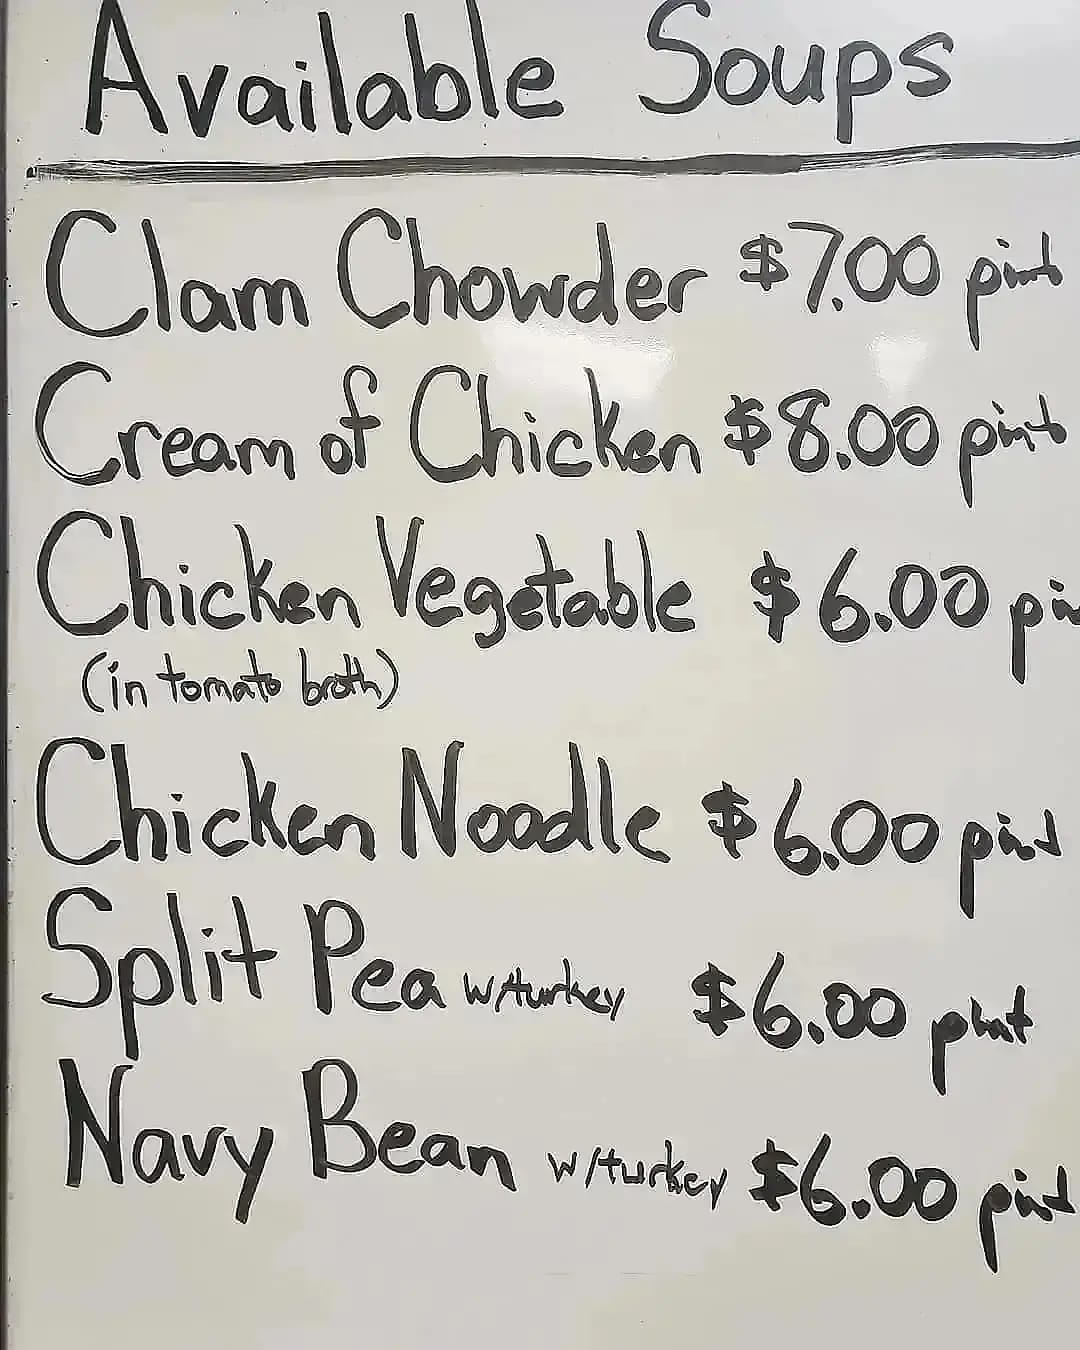 Available Soups
Clam Chowder $7.00 pint
Cream of Chicken $8.00 pint
Chicken Vegetable $6.00 pin
(in tomato broth)
Chicken Noodle $6.00 pint
Split Pea w/turkey $6.00 pint
Navy Bean w/turkey $6.00 pint